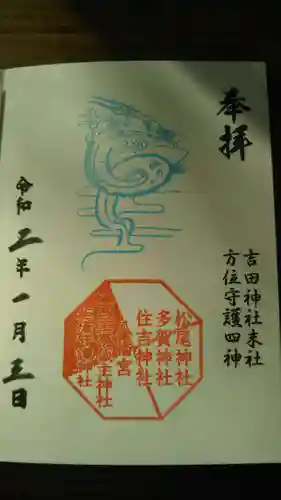 奉拝
吉田神社末社
方位守護四神
松尾神社
多賀神社
住吉神社
令和二年一月三日